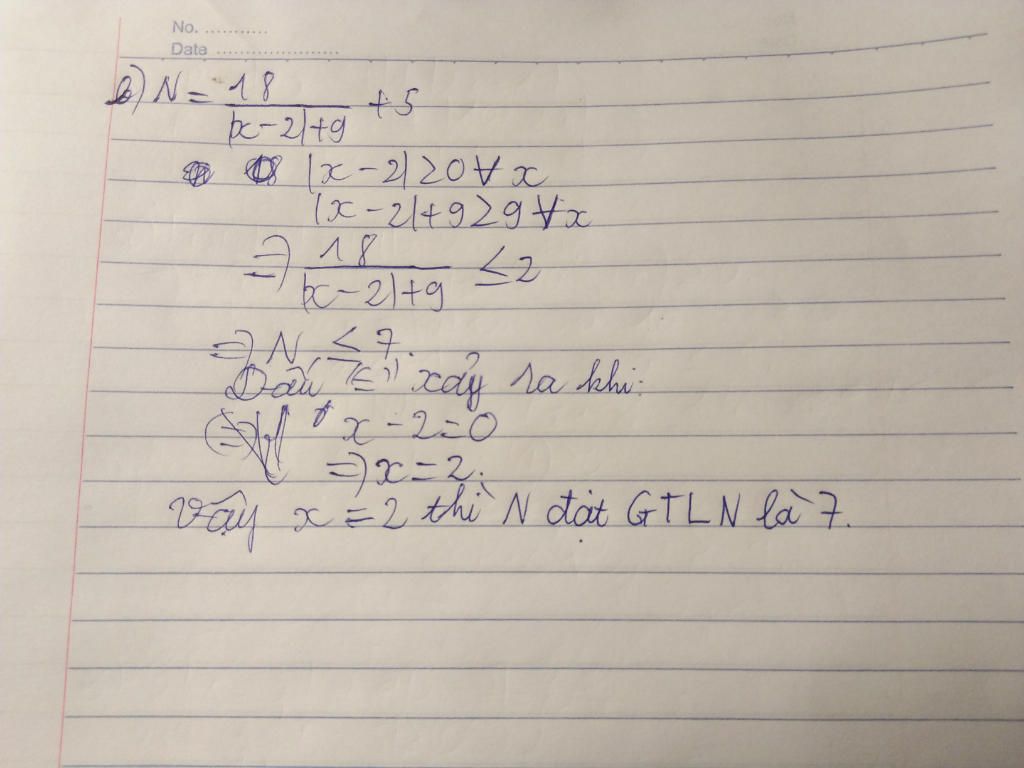 No. ...........
Data ......................
b) N = 18 / |x-2|+9 + 5
|x-2| ≥ 0 ∀ x
|x-2|+9 ≥ 9 ∀ x
=> 18 / |x-2|+9 ≤ 2
=> N ≤ 7.
Dấu "=" xảy ra khi:
x - 2 = 0
=> x = 2.
Vậy x = 2 thì N đạt GTLN là 7.